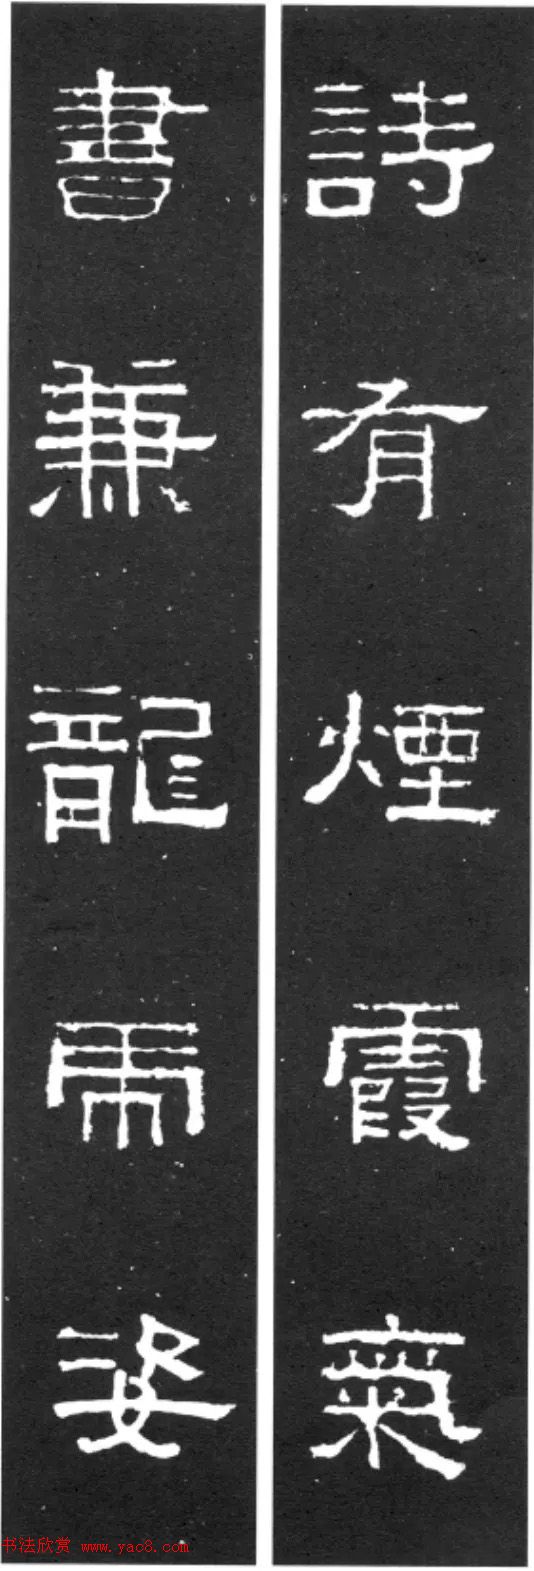 詩有煙霞氣
書兼龍虎姿
书法欣赏 www.yac8.com